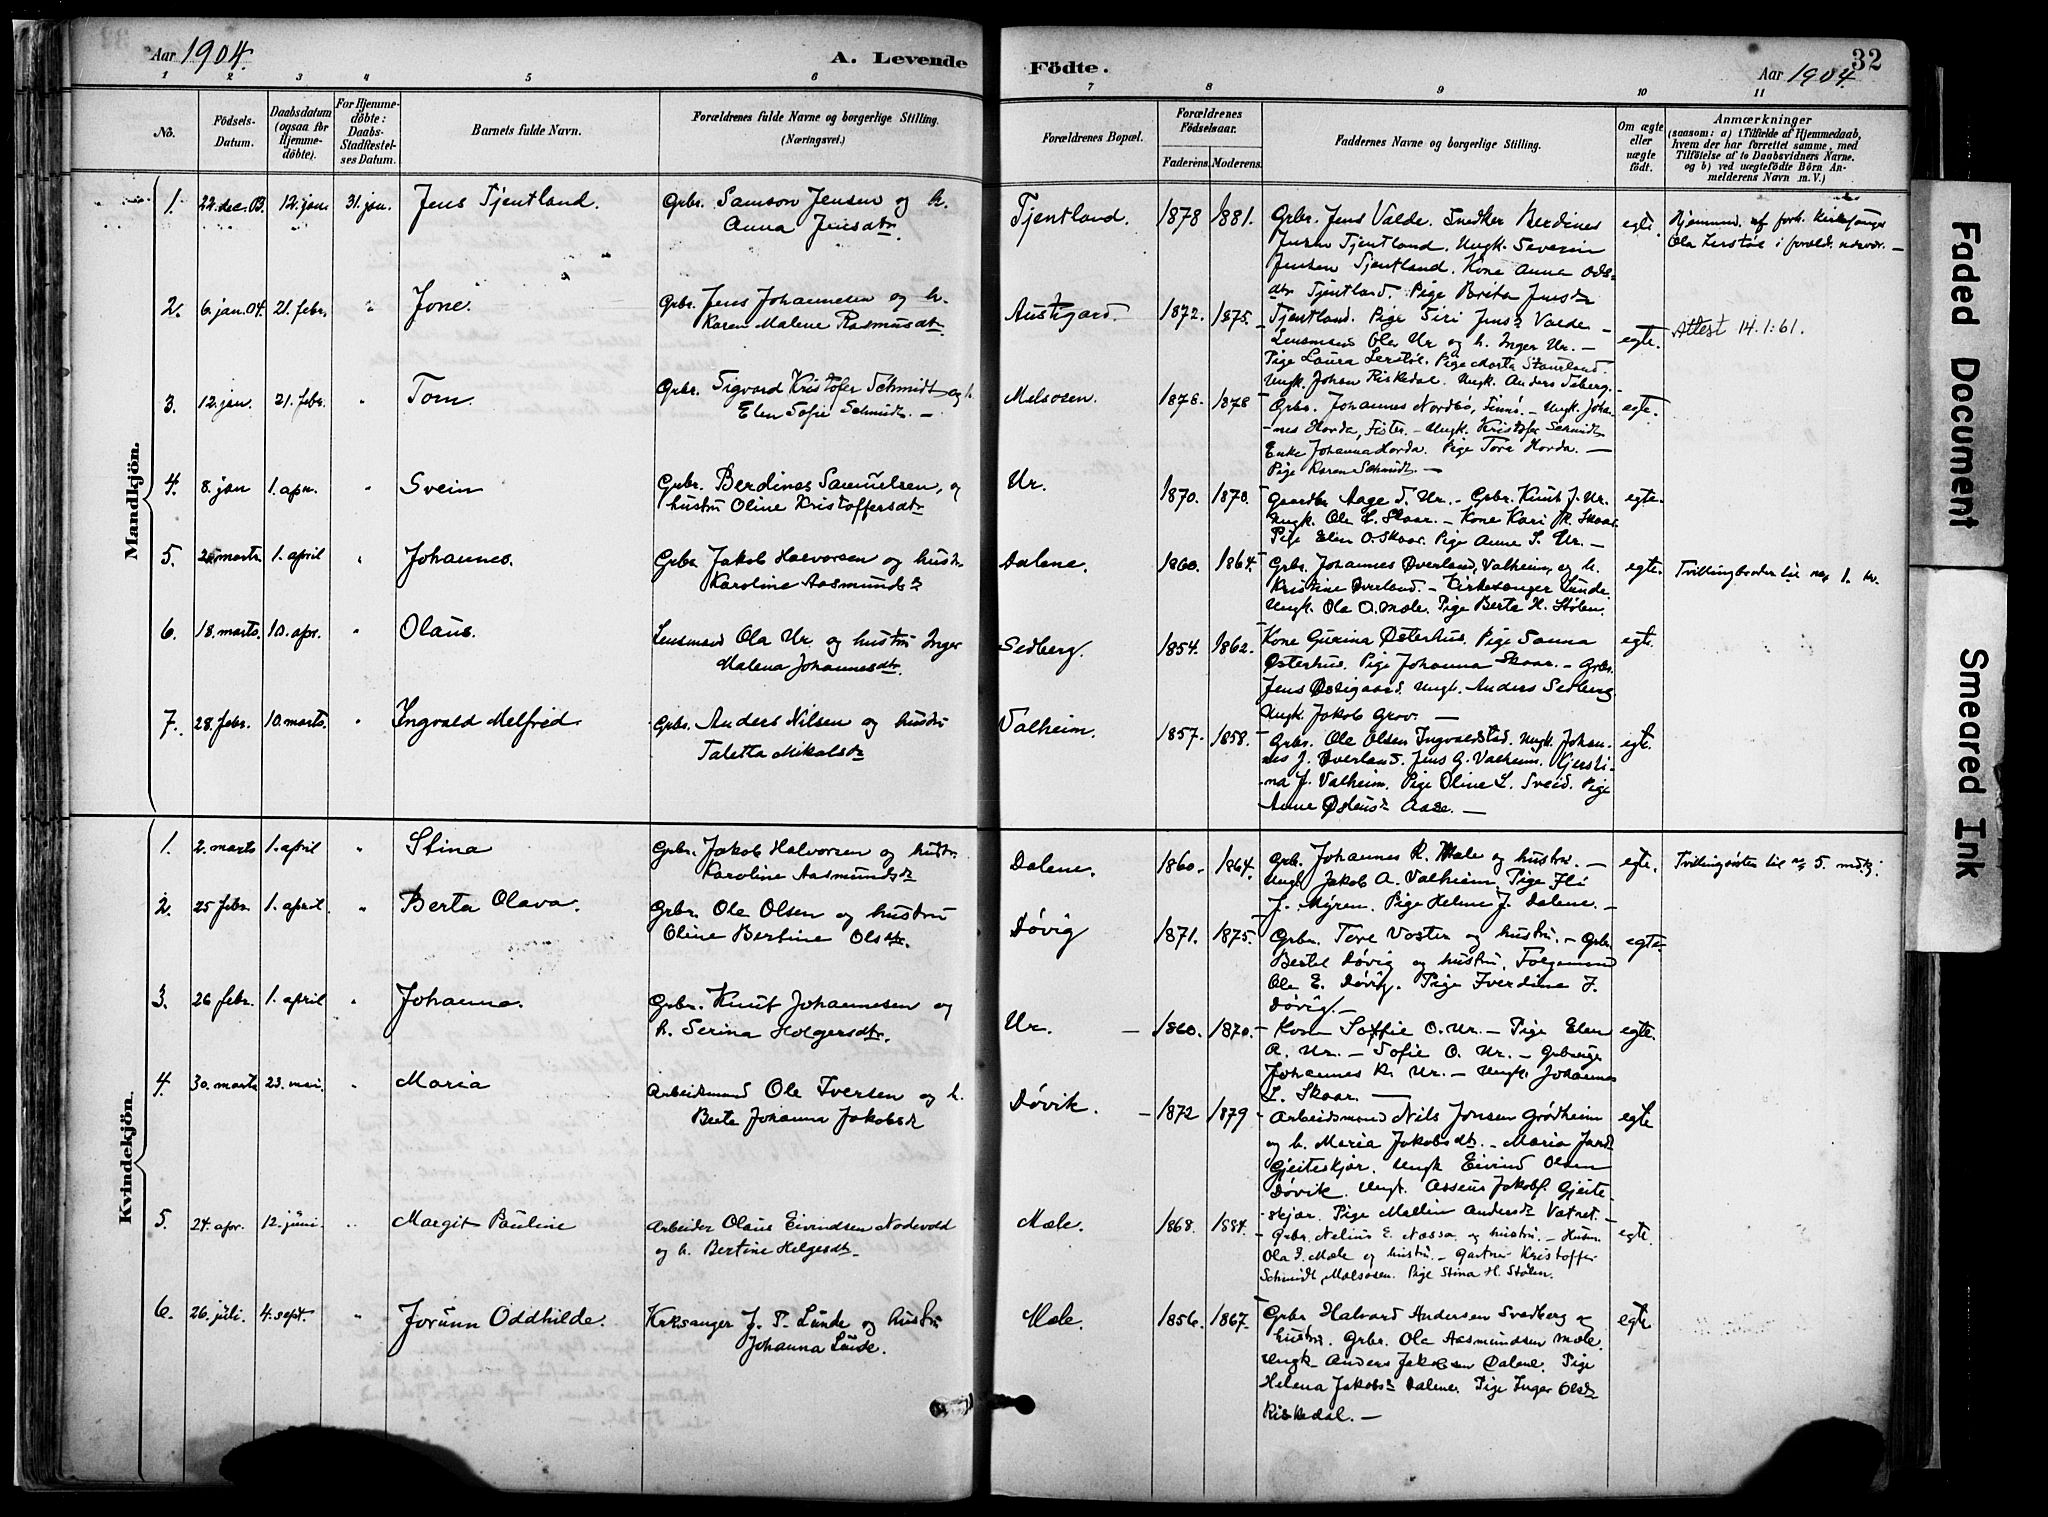 Aar 1904.
A. Levende Födte.
32
Aar 1904.
1 2 3 4 5 6 7 8 9 10 11
No.
Födsels-Datum.
Daabsdatum (ogsaa for Hjemmedöbte).
For Hjemmedöbte: Daabs-Stadfæstelses Datum.
Barnets fulde Navn.
Forældrenes fulde Navne og borgerlige Stilling. (Næringsvei.)
Forældrenes Bopæl.
Forældrenes Födselsaar.
Faderens. Moderens.
Faddernes Navne og borgerlige Stilling.
Om ægte eller uægte födt.
Anmærkninger
(saasom: a) i Tilfælde af Hjemmedaab, hvem der har forrettet samme, med Tilföielse af to Daabsvidners Navne, og b) ved uægtefödte Börn Anmelderens Navn m. V.)
Mandkjön.
1. 22. dec. 03. 12. jan. 31. jan. Jens Tjentland. Grbr. Samson Jensen og h. Anna Jensdtr. Tjentland. 1878 1881. Grbr. Jens Valde. Snedker Berdines
Jensen Tjentland. Ungk. Severin
Jensen Tjentland. Kone Anna Ods-
dtr Tjentland. Pige Brita Jensdr
Tjentland. Pige Siri Jensdr Valde –
egte. Hjemmed. af forh. Kirkesanger
Ola Lerstøl i foræld. nærvær. –
2. 6. jan. 04. 21. febr. " Jone. Grbr. Jens Johannesen og h.
Karen Malene Rasmusdtr. Austigard. 1872. 1875. Lensmand Ola Ur og h. Inger Ur. –
Pige Laura Lerstøl. Pige Marta Staurland.
Ungk. Johan Riskedal. Ungk. Anders Seberg. –
egte. Attest 14.1.61.
3. 12. jan. 21. febr. " Tom. Grbr. Sigvard Kristofer Schmidt og h.
Elen Sofie Schmidt. – Melsosen. 1878. 1878 Grbr. Johannes Nordbø, Finnö. – Ungk. Johan-
nes Horda, Fister. – Ungk. Kristofer Schmidt
Enke Johanna Horda. Pige Tora Horda. –
Pige Karen Schmidt. –
egte.
4. 8. jan 1. apr. " Svein Grbr. Berdines Samuelsen, og
hustru Oline Kristoffersdtr Ur. 1870. 1870. Gaardbr Aage S. Ur. – Grbr. Knut J. Ur.
Ungk. Ole L. Skaar. – Kone Kari R. Skaar.
Pige Elen O. Skaar. Pige Anne S. Ur. –
egte.
5. 2. marts 1. april " Johannes. Grbr Jakob Halvorsen og hustr.
Karoline Aasmundsdr Dalene. 1860. 1864. Grbr. Johannes Øverland, Valheim, og h.
Kristine Øverland. – Kirkesanger Lunde.
Ungk. Ola O. Mæle. Pige Berta H. Stølen.
egte. Tvillingbroder til no 1. kv.
6. 18. marts. 10. apr. " Olaus. Lensmand Ola Ur og hustru Inger
Malena Johannesdtr. Sedberg. 1854. 1862. Kone Gurina Østerhus. Pige Sanna
Østerhus. Pige Johanna Skaar. – Grbr.
Jens Østigaard. Ungk. Anders Sedberg
Ungk. Jakob Grov. –
egte.
7. 28. febr. 10. marts. " Ingvald Melfred Grbr. Anders Nilsen og hustru
Taletta Mikalsdr Valheim. 1857. 1858. Grbr. Ole Olsen Ingvaldstad. Ungk. Johan-
nes J. Øverland. Jens A. Valheim. Kjersti-
na J. Valheim. Pige Oline L. Sveid. Pige
Anne Østensdr Aase. –
egte.
Kvindekjön.
1. 2. marts 1. april " Stina Grbr. Jakob Halvorsen og hustr.
Karoline Aasmundsdr Dalene. 1860. 1864. Grb. Johannes R. Mæle og hustru. –
Ungk Jakob A. Valheim. Pige Eli
J. Myren. Pige Helene J. Dalene. –
egte. Tvillingsøster til no 5. mdkj.
2. 25 febr. 1. april. " Berta Olava. Grbr. Ole Olsen og hustru
Oline Bertine Olsdtr. Døvig 1871. 1875. Grbr. Tore Voster og hustru. – Grbr
Bertel Døvig og hustru. Følgemand
Ole E. Døvig. Pige Iverdine J.
Døvig. –
egte.
3. 26 febr. 1. april " Johanna. Grbr. Knut Johannesen og
h. Serina Holgersdtr. Ur. – 1860. 1870. Kone Soffie O. Ur. – Pige Elen
A. Ur. – Sofie O. Ur. – Grbruger
Johannes K. Ur. – Ungk. Johannes
L. Skaar. –
egte.
4. 30. marts 23. mai. " Maria Arbeidsmand Ole Iversen og h.
Berta Johanna Jakobsdr Døvik. – 1872 1879 Arbeidsmand Nils Jonsen Grødheim
og h. Maria Jakobsdtr. – Maria Jarda
Gjeiteskjær. Ungk Eivind Olsen
Døvik. Ungk. Asseus Jakobs. Gjeite-
skjær. Pige Mallin Andersdr Vatnet. –
egte
5. 24. apr. 12. juni. " Margit Pauline Arbeider Olaus Eivindsen Nodevold
og h. Bertine Helgesdtr. Mæle. 1868. 1884. Grbr. Nelius E. Næssa og hustru. – Husm.
Ola I. Mæle og hustru. – Gartner Kristoffer
Schmidt, Malsosen. Pige Stina H. Stølen.
egte.
6. 26. juli. 4. sept. " Jorunn Oddhilde. Kirksanger J. T. Lunde og hustru
Johanna Lunde. Mæle. 1856. 1867. Grbr Halvard Andersen Svadberg og
hustru. Grbr. Ole Aasmundsen Mæle.
Ungk Anders Jakobsen Dalene. Pige
Helena Jakobsdr Dalene. Pige Inger Olsdr
Riskedal. –
egte
Faded Document
Smeared Ink